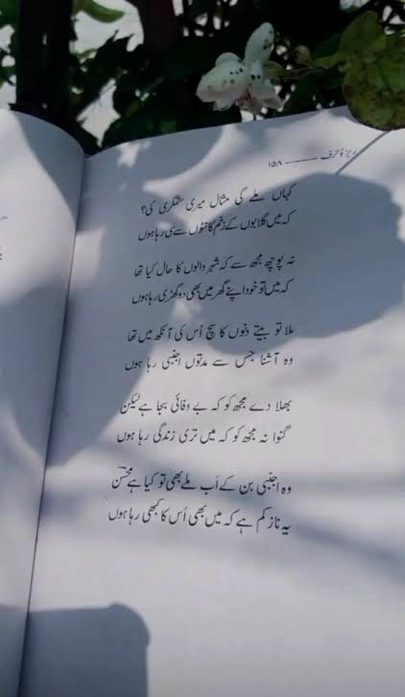 ریزۂ حرف ــــــ ۱۵۸
کہاں ملے گی مثال میری ستمگری کی؟
کہ میں گلابوں کے زخم کانٹوں سے سی رہا ہوں
نہ پوچھ مجھ سے کہ شہر والوں کا حال کیا تھا
کہ میں تو خود اپنے گھر میں بھی دو گھڑی رہا ہوں
ملا تو بیتے دنوں کا سچ اُس کی آنکھ میں تھا
وہ آشنا جس سے مدتوں اجنبی رہا ہوں
بھلا دے مجھ کو کہ بے وفائی بجا ہے لیکن
گنوا نہ مجھ کو کہ میں تری زندگی رہا ہوں
وہ اجنبی بن کے اَب ملے بھی تو کیا ہے محسنؔ
یہ ناز کم ہے کہ میں بھی اُس کا کبھی رہا ہوں